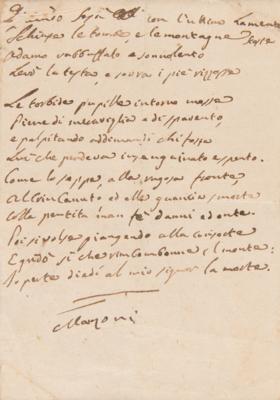 Gesù con l'ultimo lamento
Schiuse le tombe e le montagne scosse
Adamo rabbuffato e sonnolento
Levò la testa, e sovra i piè rizzosse
Le torbide pupille intorno mosse
Piene di meraviglia e di spavento,
e palpitando addimandò chi fosse
Lui che pendeva insanguinato e spento.
Come lo seppe, alla rugosa fronte,
Al crin canuto ed alle guancie smorte
colla pentita man fe' danni ed onte.
Poi si volse piangendo alla consorte
E gridò sì che rimbombonne il monte:
Io per te diedi al mio signor la morte.
Manzoni